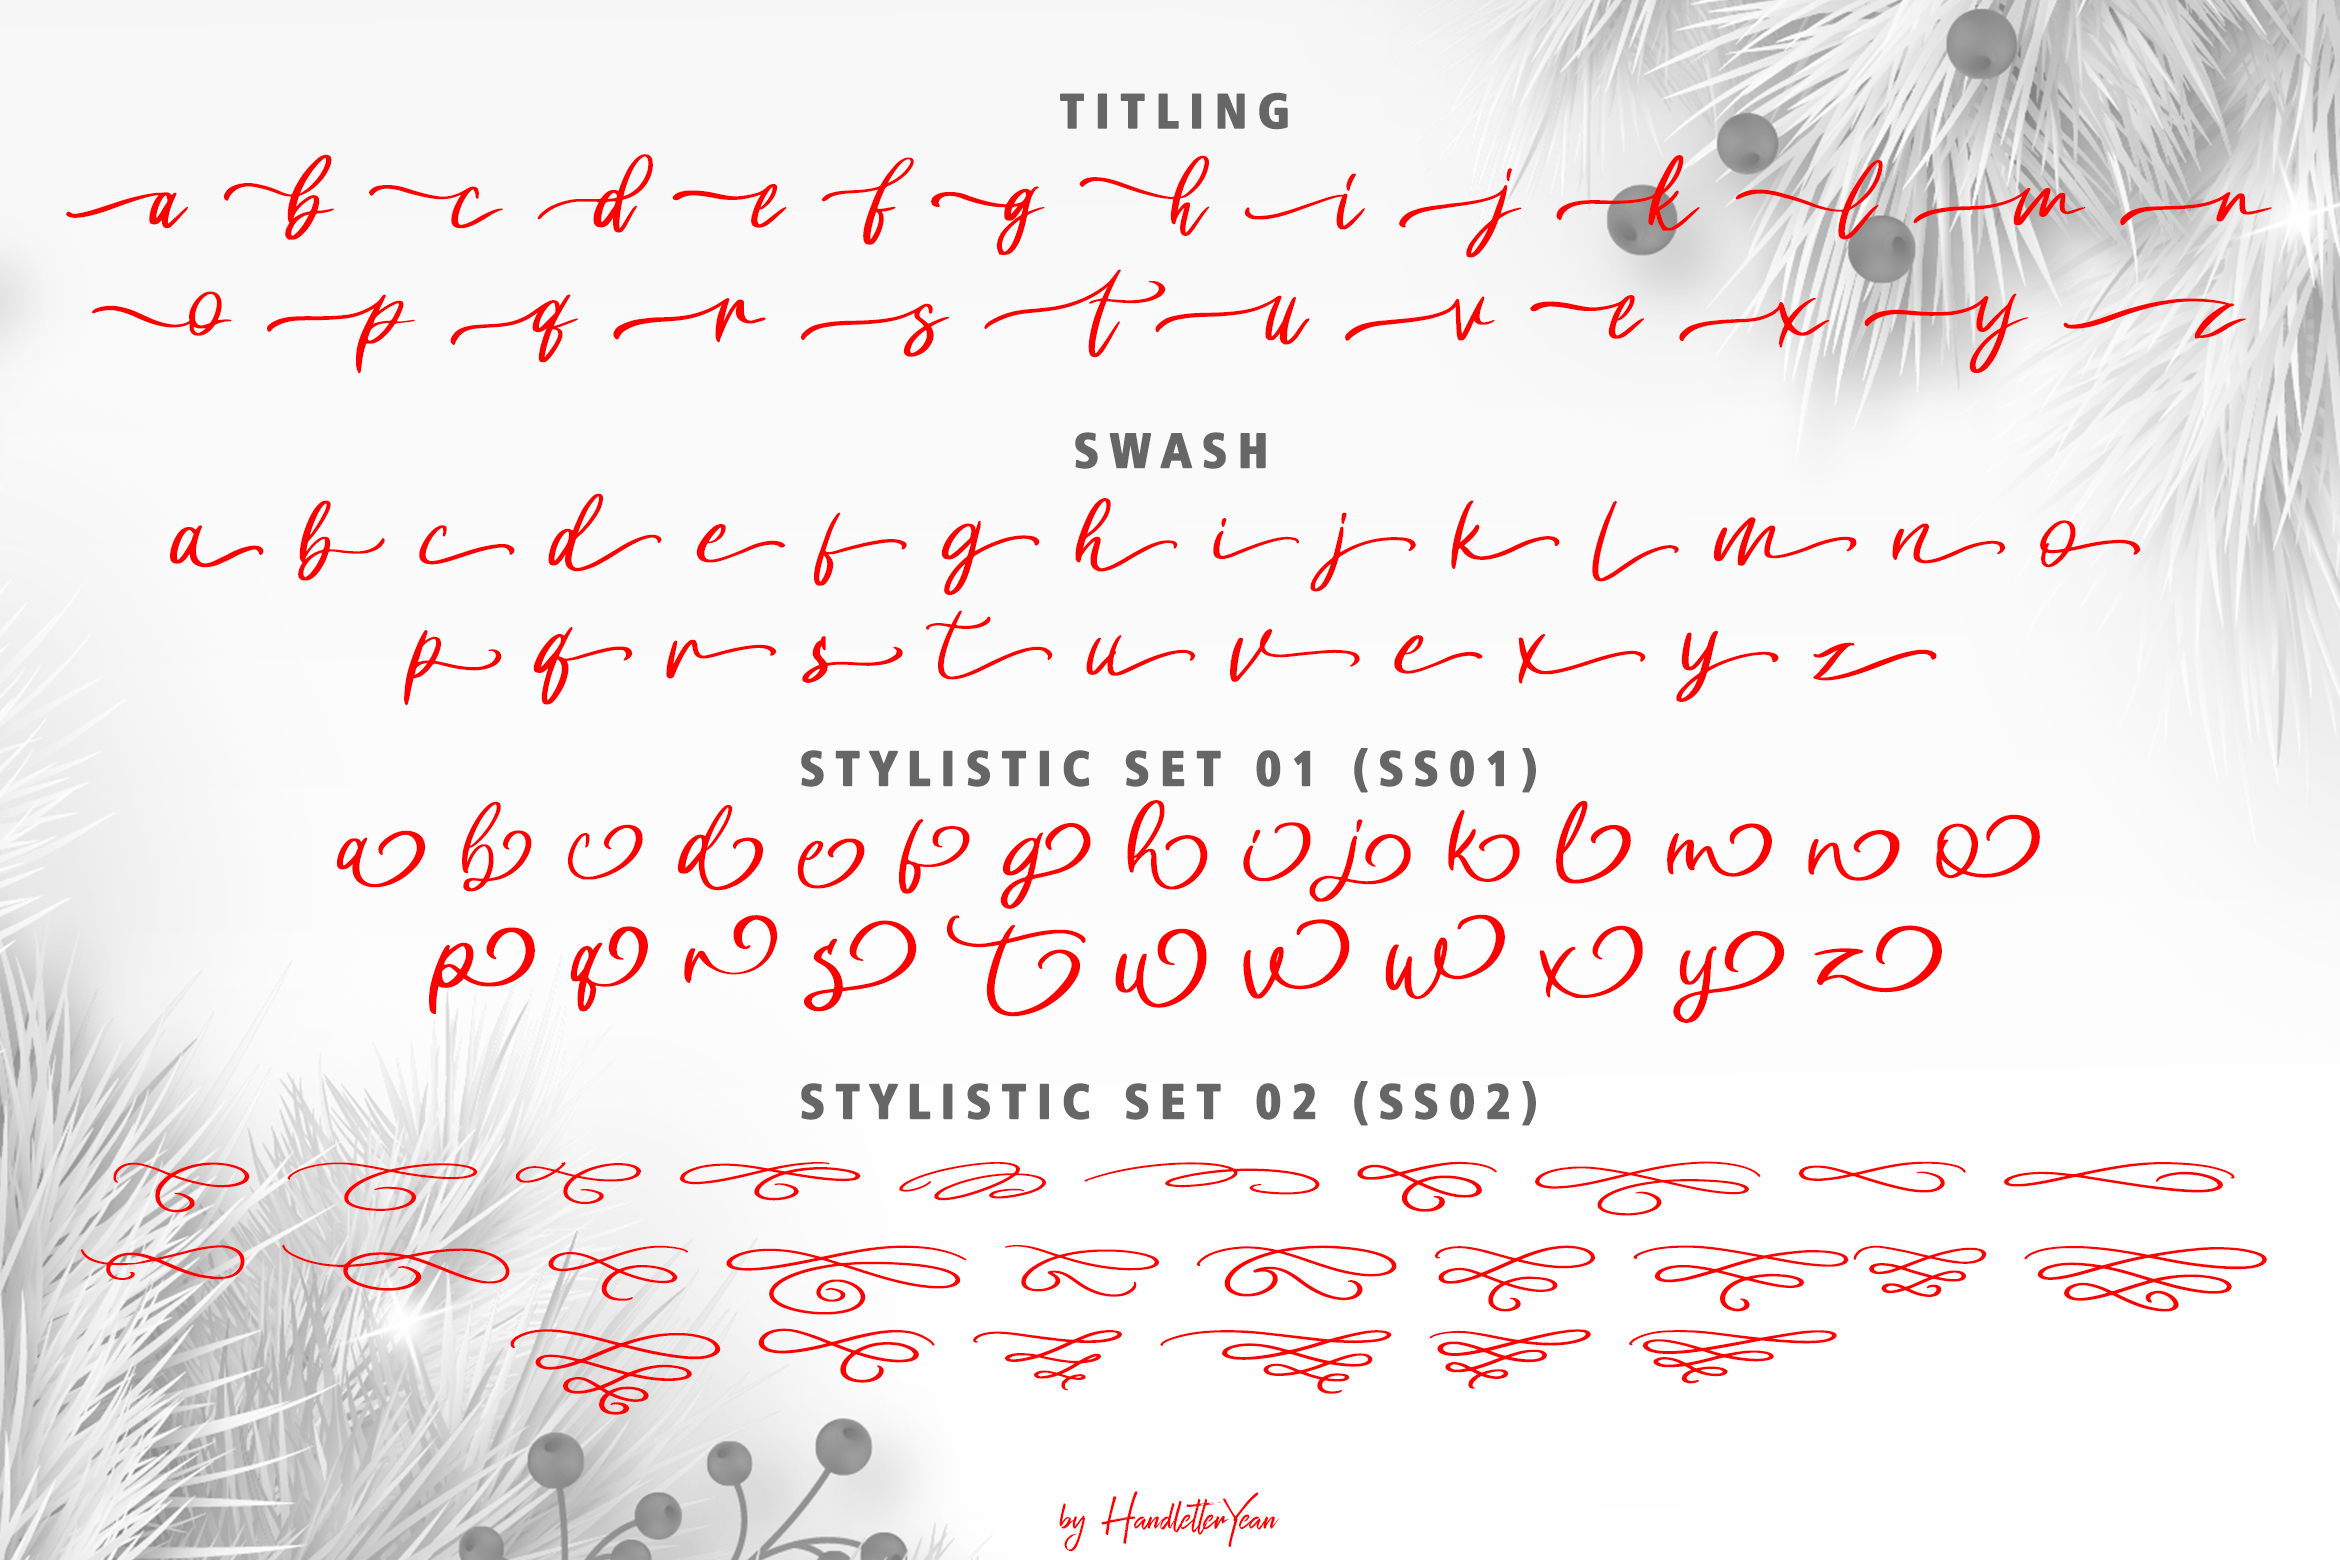 TITLING
a b c d e f g h i j k l m n
o p q r s t u v e x y z
SWASH
a b c d e f g h i j k l m n o
p q r s t u v e x y z
STYLISTIC SET 01 (SS01)
a b c d e f g h i j k l m n o
p q r s t u v w x y z
STYLISTIC SET 02 (SS02)
by HandletterYean